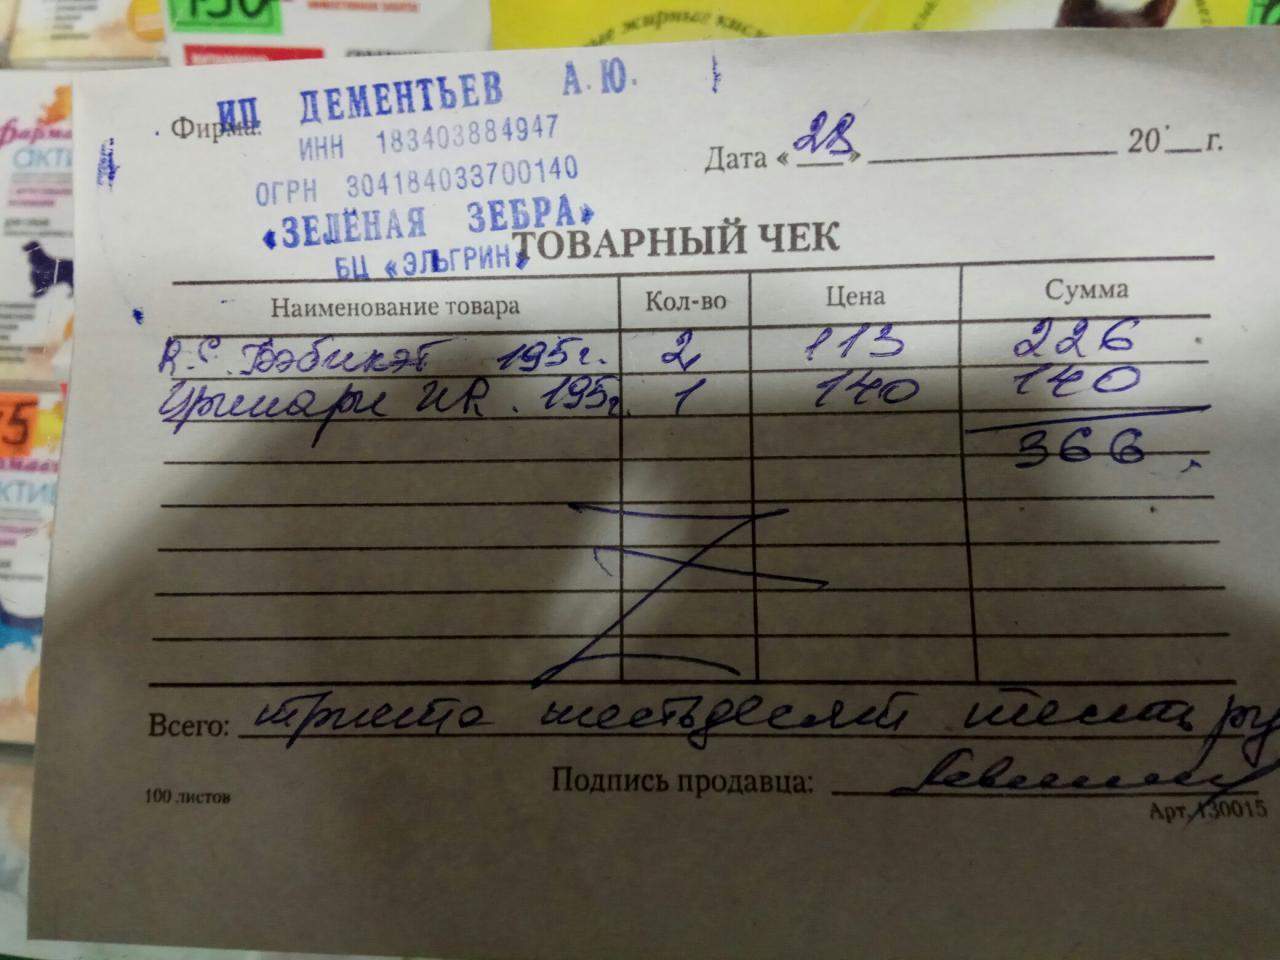 130
жирные кис
ИП ДЕМЕНТЬЕВ А.Ю.
Фирма:
ИНН 183403884947
Дата « 23 » 20 г.
ОГРН 304184033700140
«ЗЕЛЁНАЯ ЗЕБРА»
БЦ «ЭЛЬГРИН»
ТОВАРНЫЙ ЧЕК
Наименование товара Кол-во Цена Сумма
R.C. Бэбикэт 195г. 2 113 226
Уринари UR. 195г. 1 140 140
366
Всего: триста шестьдесят шесть ру
Подпись продавца:
100 листов
Арт. 130015